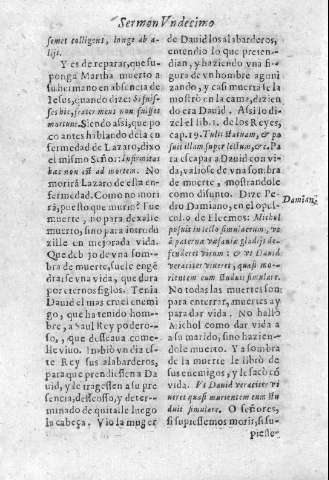 Sermon Vndecimo
semet colligent, longe ab a-
lijs.
Y es de reparar, que su-
ponga Martha muerto a
su hermano en absencia de
Iesus, quando dize: Si fuis-
ses hic, frater meus non fuisset
mortuus. Siendo assi, que po
co antes hiblando de la en
fermedad de Lazaro, dixo
el mismo Señor: Infirmitas
hæc non est ad mortem. No
morirà Lazaro de essa en-
fermedad. Como no mori
rà, puesto que murio? Fue
muerte, no para dexalle
muerto, sino para
zille en mejorada vida.
Que de bjo de vna som-
bra de muerte, suele enge
drarse vna vida, que dura
por eternos siglos. Tenia
Dauid el mas cruel enemi
go, que ha tenido hom-
bre, a Saul Rey podero-
so, que desseaua come-
lle viuo. Imbiò vn dia es-
te Rey sus alabarderos,
para que prendiessen a Da
uid, y le tragessen a su pre
sencia, desseoso, y deter-
minado de quitalle luego
la cabeça. Vio la muger
de Dauid los alabarderos,
entendio lo que preten-
dian, y haziendo vna fi-
gura de vn hombre agoni
zando, y casi muerta se la
mostrò en la cama, dizien
do era Dauid. Assi lo di-
ze el lib. 1. de los Reyes,
cap. 19. Tulit statuam, & po
suit illam super lectum, &c. Pa
ra escapar a Dauid con vi-
da, valiose de vna sombra
de muerte, mostrandole
como difunto. Dize Pe-
dro Damiano, en el opus-
colo de Eleemos: Michol
Damian.
posuit in lecto simulacrum, vt
à paterna vesaniæ gladijs de-
fenderet virum: & vt Dauid
veraciter viueret, quasi mo-
rientem eum studuit simulare.
No todas las muertes son
para enterrar, muertes ay
para dar vida. No hallò
Michol como dar vida a
a su marido, sino hazien-
dole muerto. Y a sombra
de la muerte le librò de
sus enemigos, y le fue cau-
sa de vida. Vt Dauid veraciter vi
ueret quasi morientem eum stu
duit simulare. O señores,
si supiessemos morir, si su-
piesse-